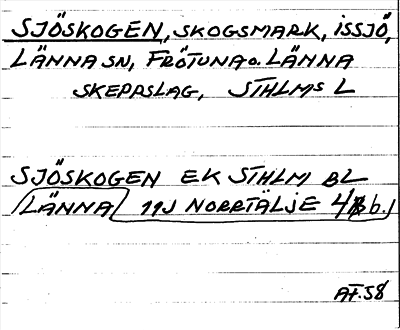 SJÖSKOGEN, SKOGSMARK, ISSJÖ,
LÄNNA SN, FRÖTUNA o. LÄNNA
SKEPPSLAG, STHLMS L
SJÖSKOGEN EK STHLM BL
LÄNNA 11J NORRTÄLJE b.
AF.58